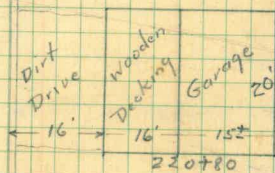 Dirt
Drive
Wooden
Decking
Garage
20'
16'
16'
15±
220+80